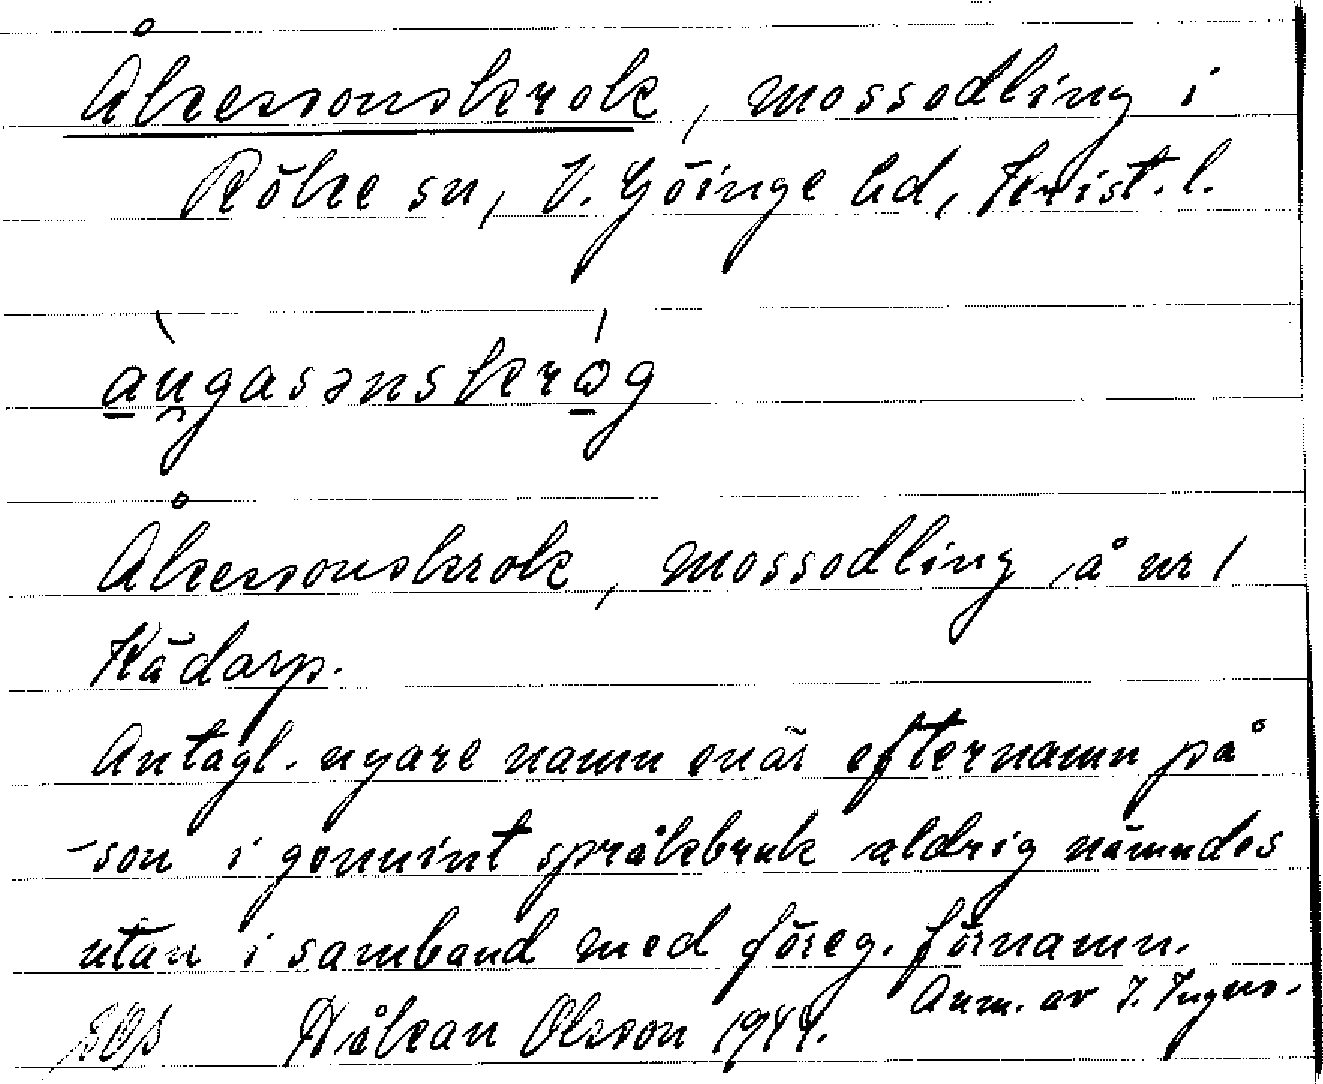 Åkessonskrok, mossodling i
Röke sn, V. Göinge hd, Krist. l.
àu̯gasənskrógͅ
Åkessonskrok, mossodling å nr 1
Kådarp.
Antagl. nyare namn enär efternamn på
-son i genuint språkbruk aldrig nämndes
utan i samband med föreg. förnamn.
Anm. av I. Ingers.
Håkan Olsson 1944.